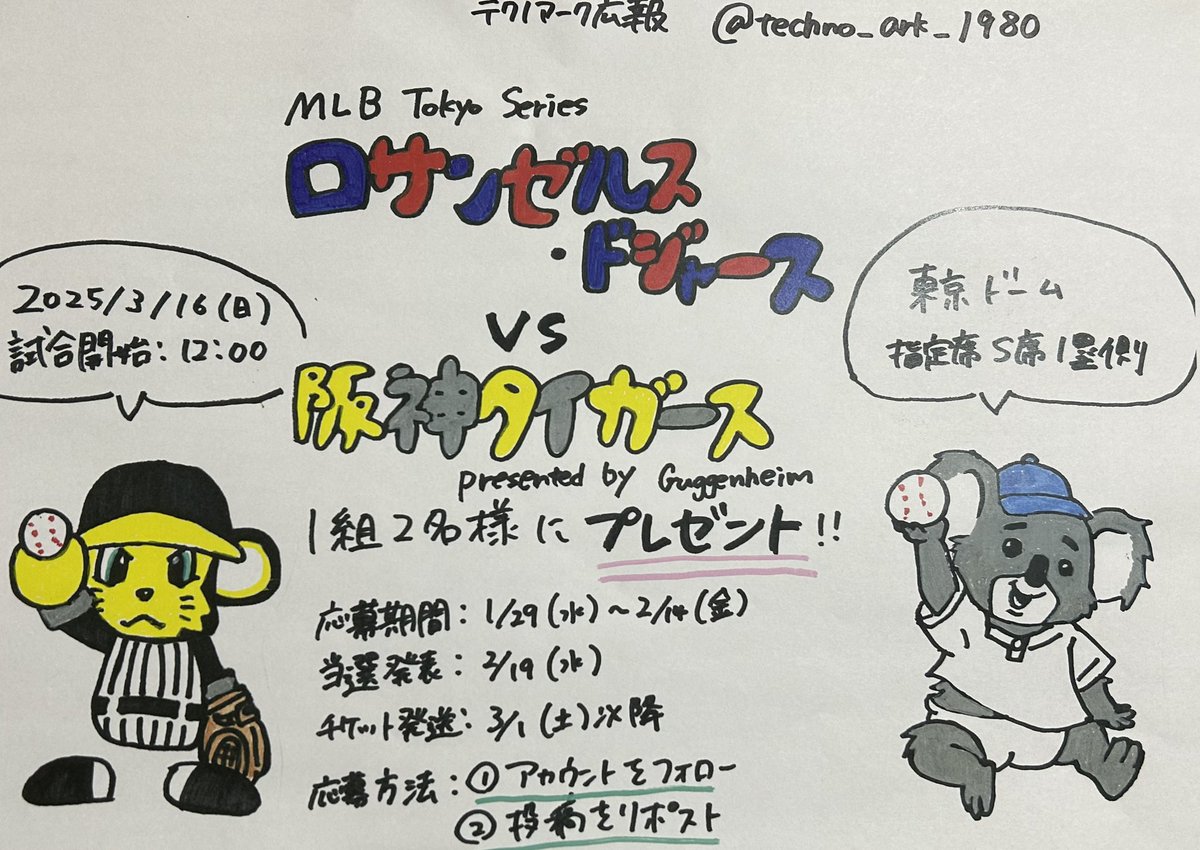 テクノアーク広報 @techno_ark_1980
MLB Tokyo Series
ロサンゼルス
・ドジャース
vs
阪神タイガース
presented by Guggenheim
1組2名様にプレゼント!!
2025/3/16(日)
試合開始:12:00
東京ドーム
指定席S席1塁側
応募期間:1/29(水)〜2/14(金)
当選発表:2/19(水)
チケット発送:3/1(土)以降
応募方法:①アカウントをフォロー
②投稿をリポスト